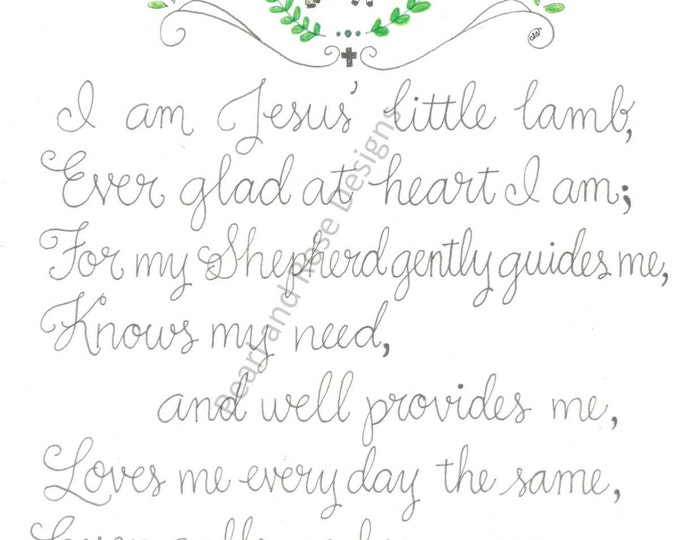 I am Jesus' little lamb,
Ever glad at heart I am;
For my Shepherd gently guides me,
Knows my need,
and well provides me,
Loves me every day the same,
Pearl and Rose Designs